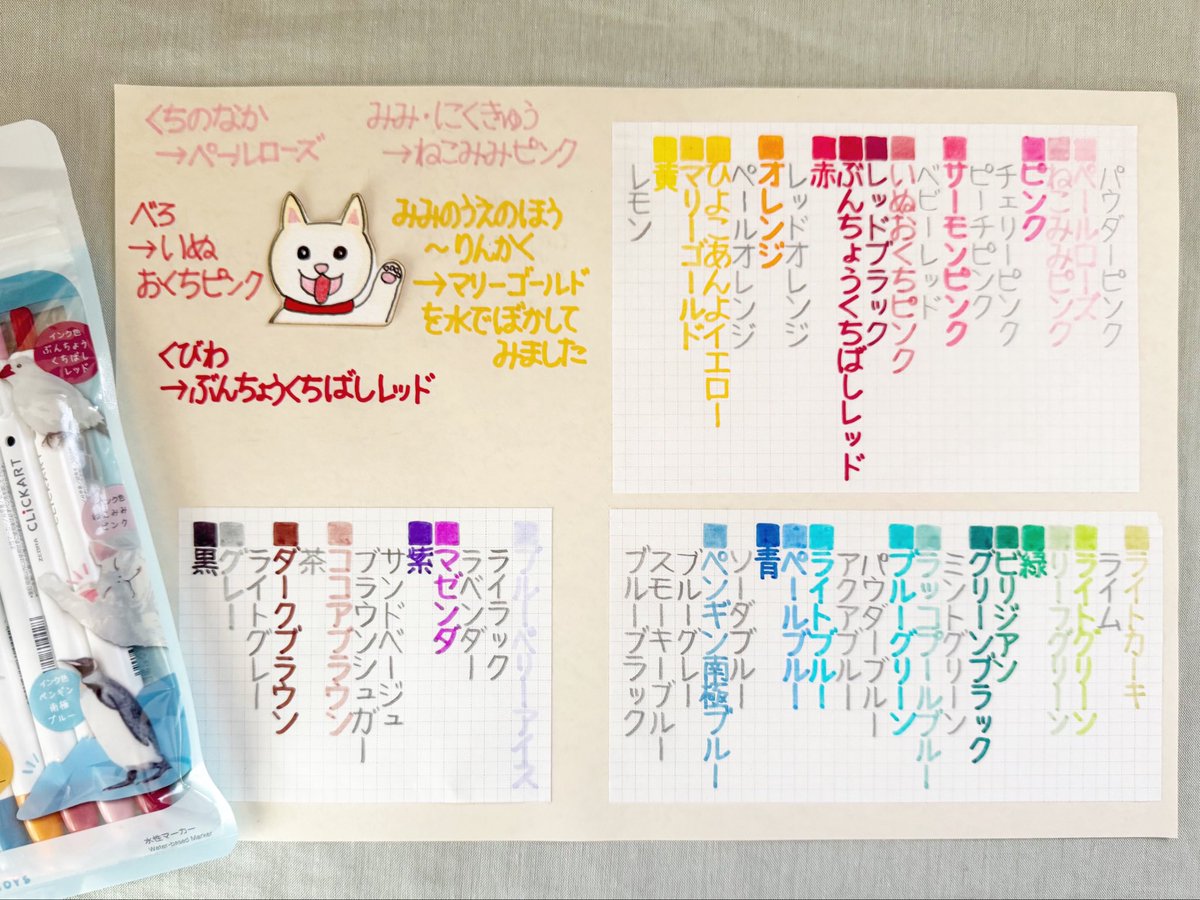 くちのなか
→ペールローズ
みみ・にくきゅう
→ねこみみピンク
べろ
→いぬ
おくちピンク
みみのうえのほう
～りんかく
→マリーゴールド
を水でぼかして
みました
くびわ
→ぶんちょうくちばしレッド
パウダーピンク
ペールローズ
ねこみみピンク
ピンク
チェリーピンク
ピーチピンク
サーモンピンク
ベビーレッド
いぬおくちピンク
レッドブラック
ぶんちょうくちばしレッド
赤
レッドオレンジ
オレンジ
ペールオレンジ
ひよこあんよイエロー
マリーゴールド
黄
レモン
ライトカーキ
ライム
ライトグリーン
リーフグリーン
緑
ビリジアン
グリーンブラック
ミントグリーン
ラッコプールブルー
ブルーグリーン
パウダーブルー
アクアブルー
ライトブルー
ペールブルー
青
ソーダブルー
ペンギン南極ブルー
ブルーグレー
スモーキーブルー
ブルーブラック
ブルーベリーアイス
ライラック
ラベンダー
マゼンダ
紫
サンドベージュ
ブラウンシュガー
ココアブラウン
茶
ダークブラウン
ライトグレー
グレー
黒
インク色
ぶんちょう
くちばし
レッド
CLiCKART
ZEBRA
インク色
ねこみみ
ピンク
インク色
ペンギン
南極
ブルー
水性マーカー
Water-based Marker